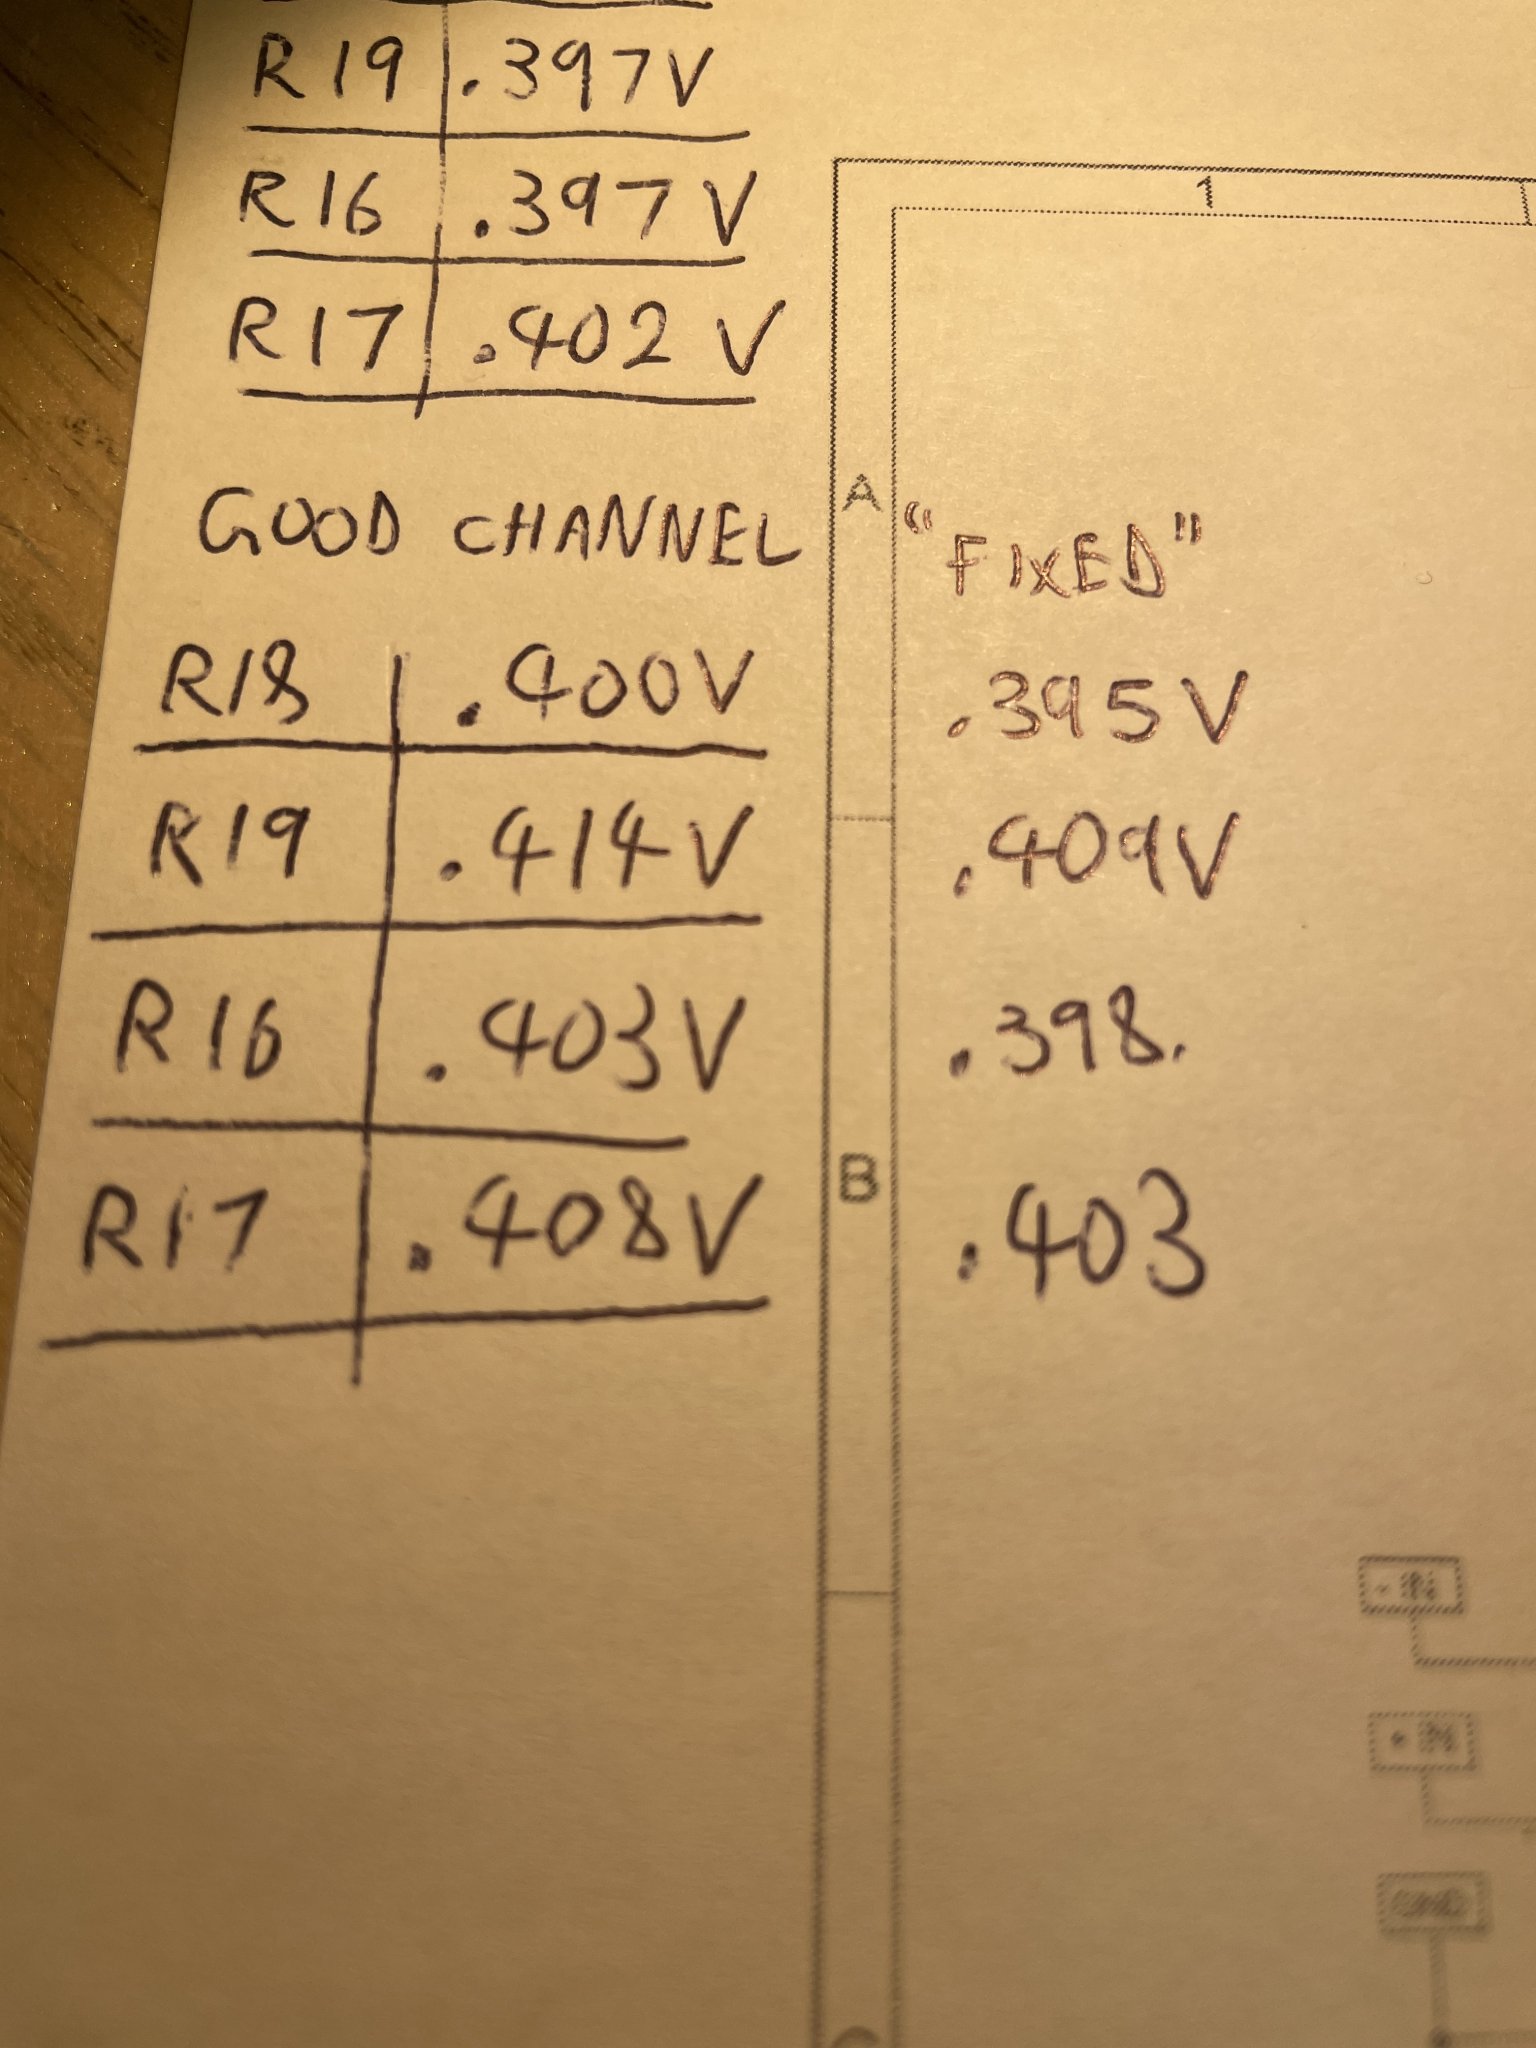 R19 .397V
R16 .397V
R17 .402V
1
GOOD CHANNEL
A
"FIXED"
R18 .400V .395V
R19 .414V .409V
R16 .403V .398.
B
R17 .408V .403